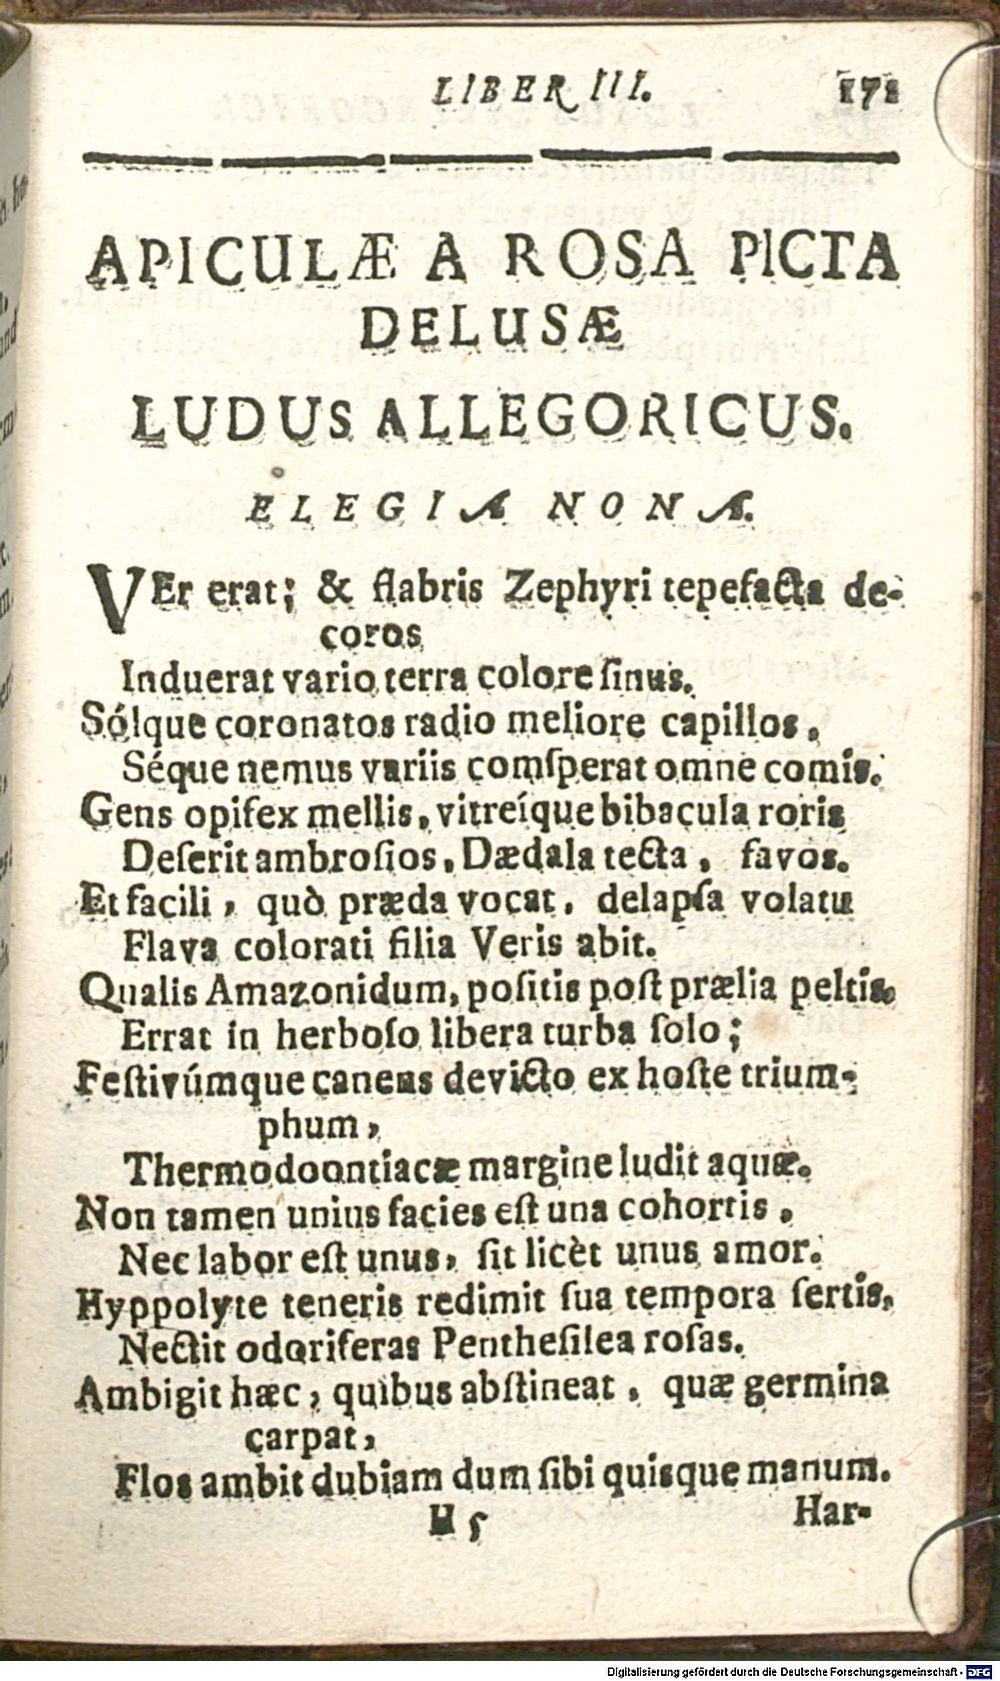 LIBER III. 171
APICULÆ A ROSA PICTA
DELUSÆ
LUDUS ALLEGORICUS.
ELEGIA NONA.
VEr erat; & flabris Zephyri tepefacta de-
coros
Induerat vario terra colore ſinus.
Sólque coronatos radio meliore capillos,
Séque nemus variis comſperat omne comis.
Gens opifex mellis, vitreíque bibacula roris
Deſerit ambroſios, Dædala tecta, favos.
Et facili, quò præda vocat, delapſa volatu
Flava colorati filia Veris abit.
Qualis Amazonidum, poſitis poſt prælia peltis,
Errat in herboſo libera turba ſolo;
Feſtivúmque canens devicto ex hoſte trium-
phum,
Thermodoontiacæ margine ludit aquæ.
Non tamen unius facies eſt una cohortis,
Nec labor eſt unus, ſit licèt unus amor.
Hyppolyte teneris redimit ſua tempora ſertis,
Nectit odoriferas Pentheſilea roſas.
Ambigit hæc, quibus abſtineat, quæ germina
carpat,
Flos ambit dubiam dum ſibi quisque manum.
H 5 Har-
Digitalisierung gefördert durch die Deutsche Forschungsgemeinschaft - DFG